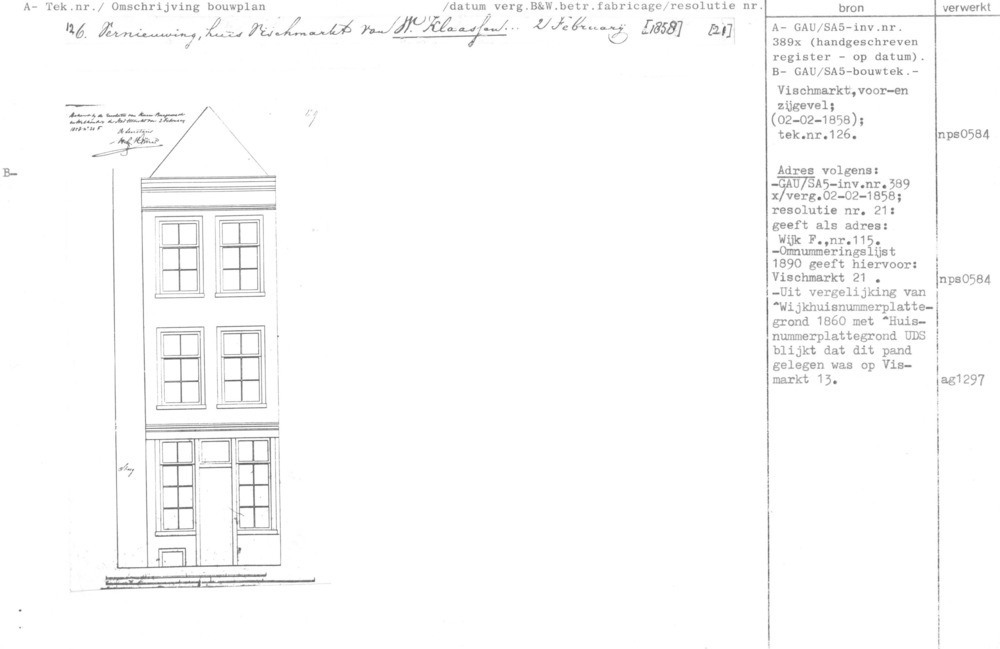 A- Tek.nr./ Omschrijving bouwplan /datum verg.B&W.betr.fabricage/resolutie nr.
126. Vernieuwing, huis Vischmarkt van Wd Klaassen... 2 Februarij [1858] [21]
B-
bron
A- GAU/SA5-inv.nr.
389x (handgeschreven
register - op datum).
B- GAU/SA5-bouwtek.-
Vischmarkt,voor-en
zijgevel;
(02-02-1858);
tek.nr.126.
Adres volgens:
-GAU/SA5-inv.nr.389
x/verg.02-02-1858;
resolutie nr. 21:
geeft als adres:
Wijk F.,nr.115.
-Omnummeringslijst
1890 geeft hiervoor:
Vischmarkt 21 .
-Uit vergelijking van
^Wijkhuisnummerplatte-
grond 1860 met ^Huis-
nummerplattegrond UDS
blijkt dat dit pand
gelegen was op Vis-
markt 13.
verwerkt
nps0584
nps0584
ag1297